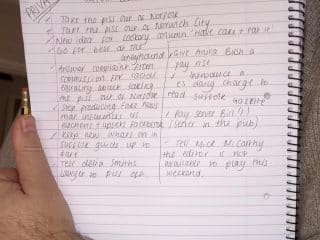 PRIV
Take the piss out of Norfolk
Take the piss out of Norwich City
New idea for cookery column 'Have cake & eat it'
Go for beer at the Greyhound
Answer complaint from
commission for racial
equality about taking
the piss out of Norfolk
Stop producing Fake News
that influences US
elections & upsets Facebook
Keep new What's on in
Suffolk guide up to
date
Tell Delia Smiths
lawyer to piss off.
Give Anita Bush a
pay rise
Introduce a
£5 daily charge to
read Suffolk Gazette
Pay server bill
(server in the pub)
Tell Mick McCarthy
the editor is not
available to play this
weekend.